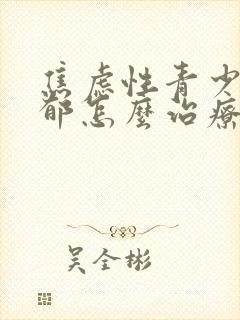 焦虑性青少
都怎麼治療
吴全彬